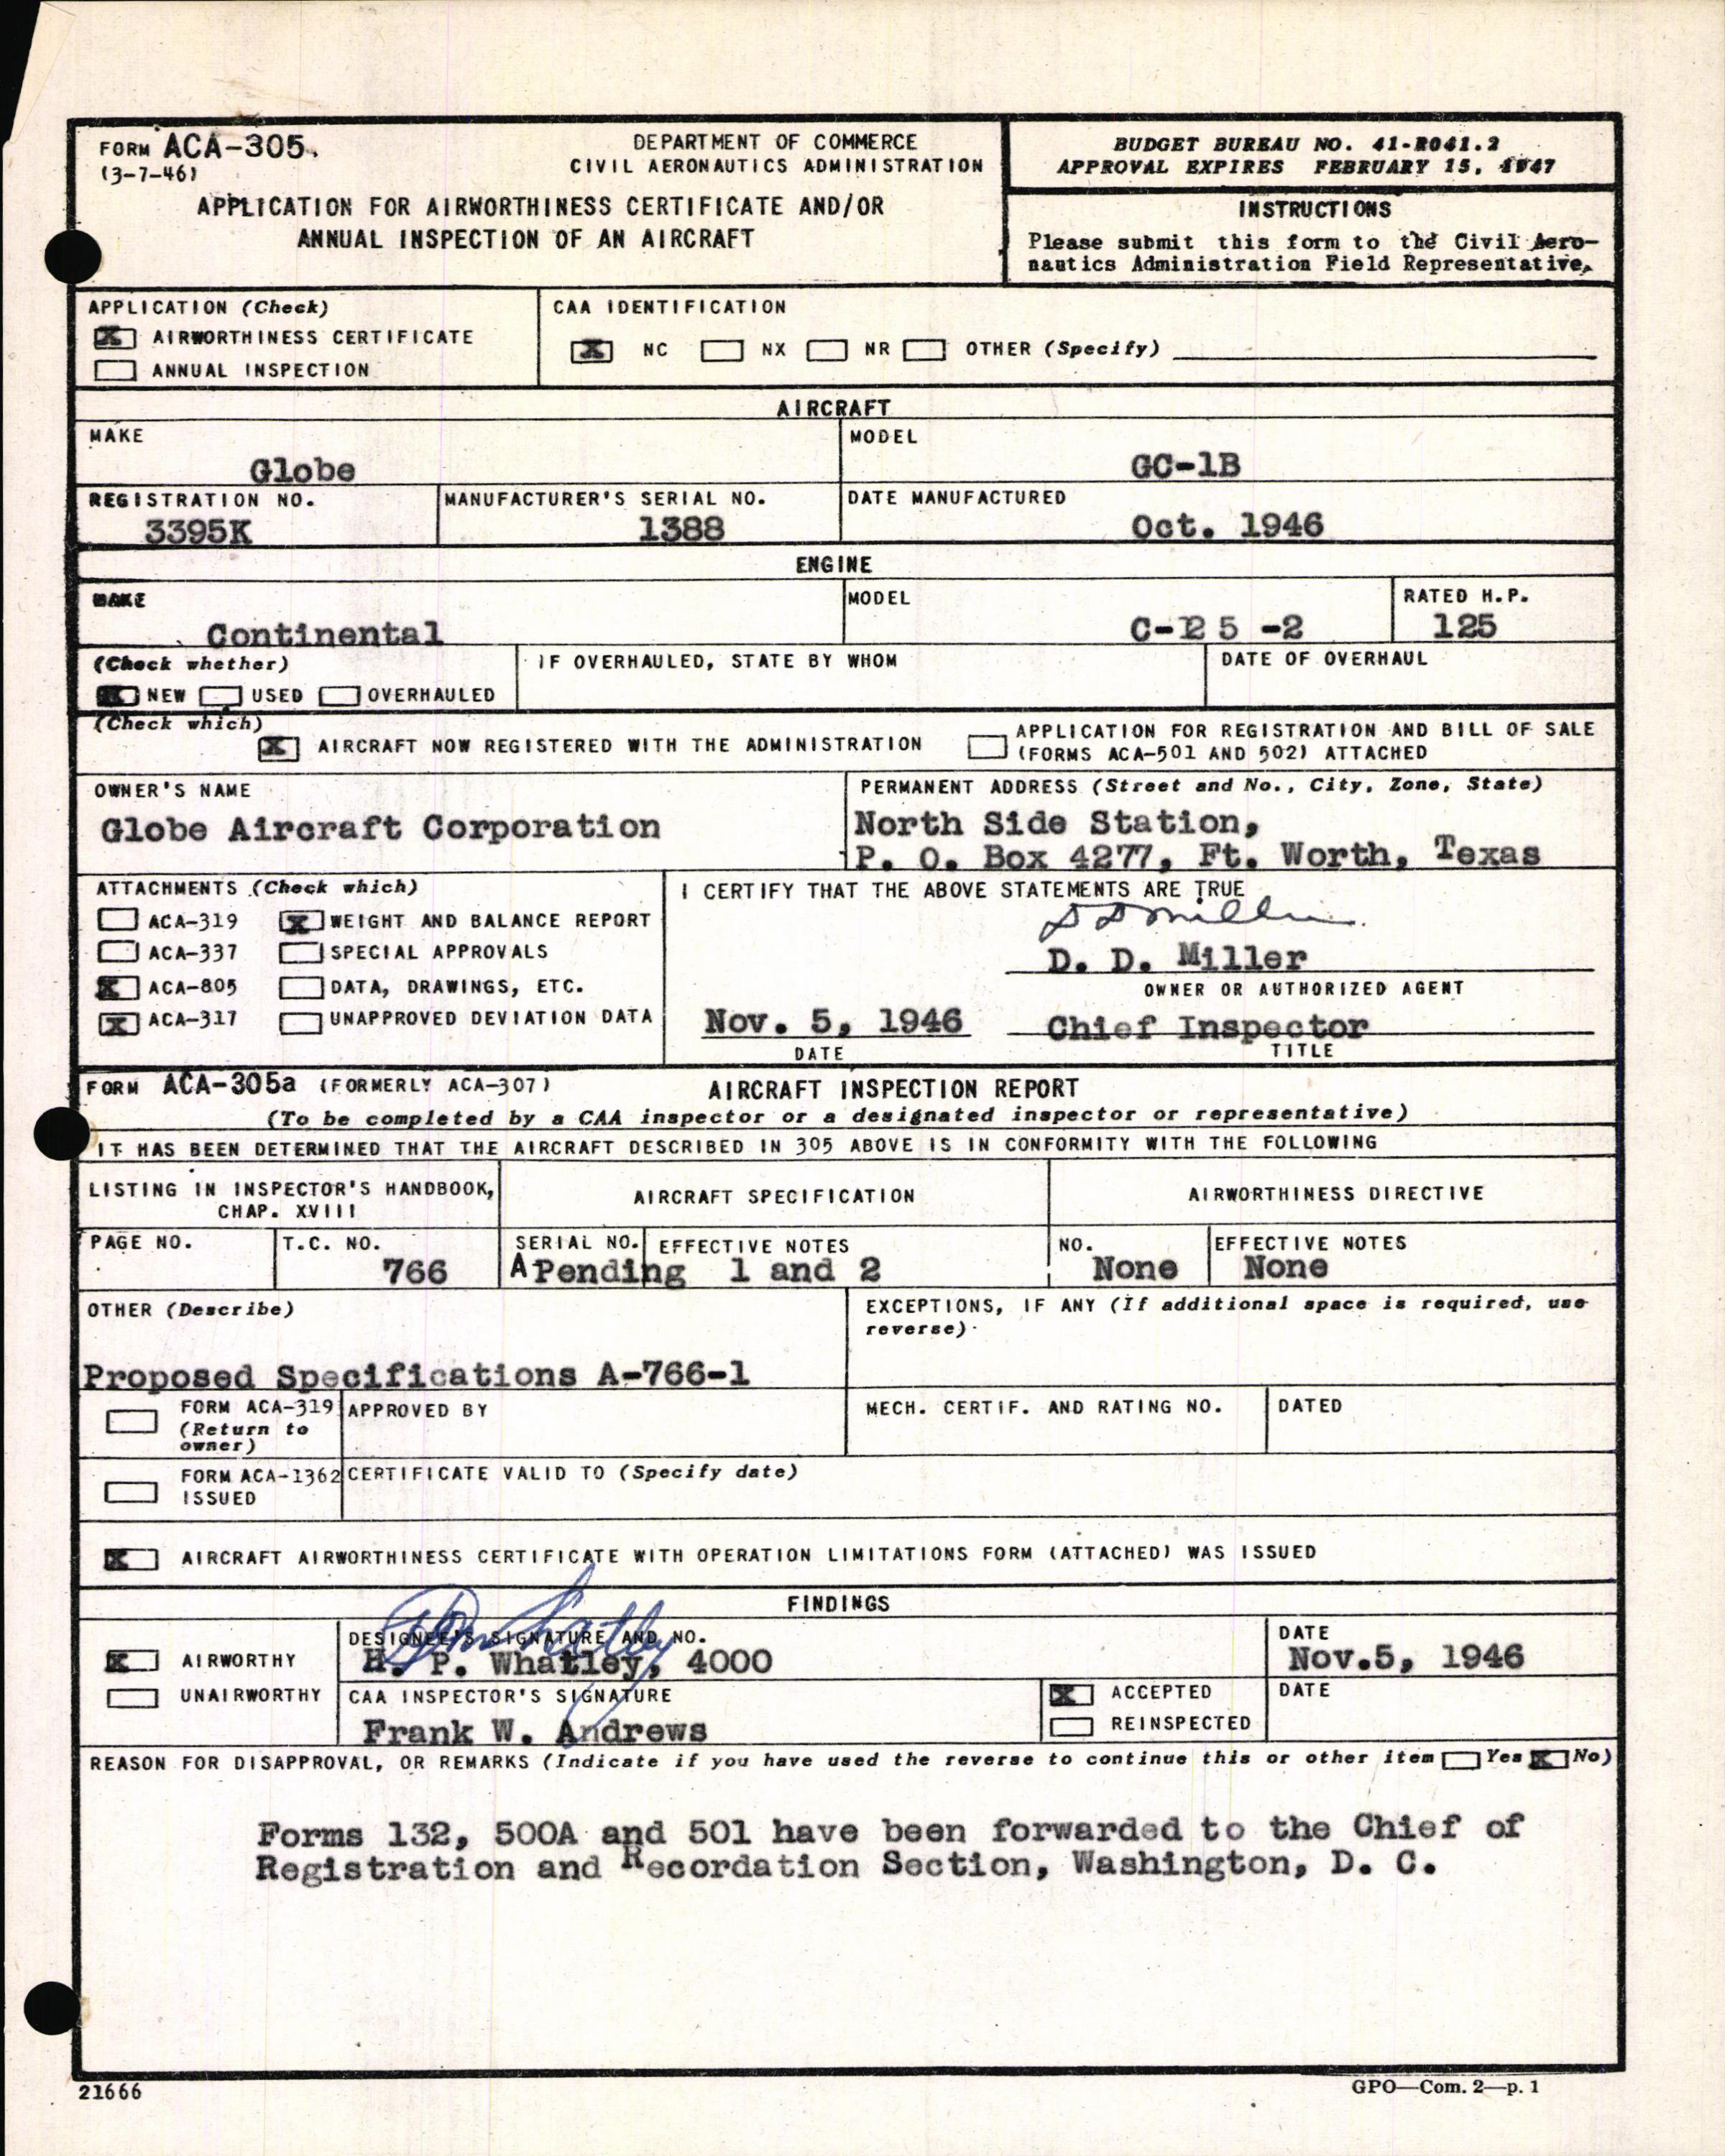 FORM ACA-305.
(3-7-46)
DEPARTMENT OF COMMERCE
CIVIL AERONAUTICS ADMINISTRATION
APPLICATION FOR AIRWORTHINESS CERTIFICATE AND/OR
ANNUAL INSPECTION OF AN AIRCRAFT
BUDGET BUREAU NO. 41-R041.2
APPROVAL EXPIRES FEBRUARY 15, 1947
INSTRUCTIONS
Please submit this form to the Civil Aero-
nautics Administration Field Representative.
APPLICATION (Check)
X AIRWORTHINESS CERTIFICATE
ANNUAL INSPECTION
CAA IDENTIFICATION
X NC NX NR OTHER (Specify)
AIRCRAFT
MAKE
Globe
MODEL
GC-1B
REGISTRATION NO.
3395K
MANUFACTURER'S SERIAL NO.
1388
DATE MANUFACTURED
Oct. 1946
ENGINE
MAKE
Continental
MODEL
C-125-2
RATED H.P.
125
(Check whether)
X NEW USED OVERHAULED
IF OVERHAULED, STATE BY WHOM
DATE OF OVERHAUL
(Check which)
X AIRCRAFT NOW REGISTERED WITH THE ADMINISTRATION
APPLICATION FOR REGISTRATION AND BILL OF SALE
(FORMS ACA-501 AND 502) ATTACHED
OWNER'S NAME
Globe Aircraft Corporation
PERMANENT ADDRESS (Street and No., City, Zone, State)
North Side Station,
P. O. Box 4277, Ft. Worth, Texas
ATTACHMENTS (Check which)
ACA-319 X WEIGHT AND BALANCE REPORT
ACA-337 SPECIAL APPROVALS
X ACA-805 DATA, DRAWINGS, ETC.
X ACA-317 UNAPPROVED DEVIATION DATA
I CERTIFY THAT THE ABOVE STATEMENTS ARE TRUE
D D Miller
D. D. Miller
OWNER OR AUTHORIZED AGENT
Nov. 5, 1946 Chief Inspector
DATE TITLE
FORM ACA-305a (FORMERLY ACA-307) AIRCRAFT INSPECTION REPORT
(To be completed by a CAA inspector or a designated inspector or representative)
IT HAS BEEN DETERMINED THAT THE AIRCRAFT DESCRIBED IN 305 ABOVE IS IN CONFORMITY WITH THE FOLLOWING
LISTING IN INSPECTOR'S HANDBOOK,
CHAP. XVIII
AIRCRAFT SPECIFICATION
AIRWORTHINESS DIRECTIVE
PAGE NO.
T.C. NO.
766
SERIAL NO. EFFECTIVE NOTES
A Pending 1 and 2
NO.
None
EFFECTIVE NOTES
None
OTHER (Describe)
Proposed Specifications A-766-1
EXCEPTIONS, IF ANY (If additional space is required, use
reverse)
FORM ACA-319
(Return to
owner)
APPROVED BY
MECH. CERTIF. AND RATING NO.
DATED
FORM ACA-1362
ISSUED
CERTIFICATE VALID TO (Specify date)
X AIRCRAFT AIRWORTHINESS CERTIFICATE WITH OPERATION LIMITATIONS FORM (ATTACHED) WAS ISSUED
FINDINGS
X AIRWORTHY
UNAIRWORTHY
DESIGNEE'S SIGNATURE AND NO.
H. P. Whatley, 4000
DATE
Nov.5, 1946
CAA INSPECTOR'S SIGNATURE
Frank W. Andrews
X ACCEPTED
REINSPECTED
DATE
REASON FOR DISAPPROVAL, OR REMARKS (Indicate if you have used the reverse to continue this or other item Yes X No)
Forms 132, 500A and 501 have been forwarded to the Chief of
Registration and Recordation Section, Washington, D. C.
21666
GPO—Com. 2—p. 1